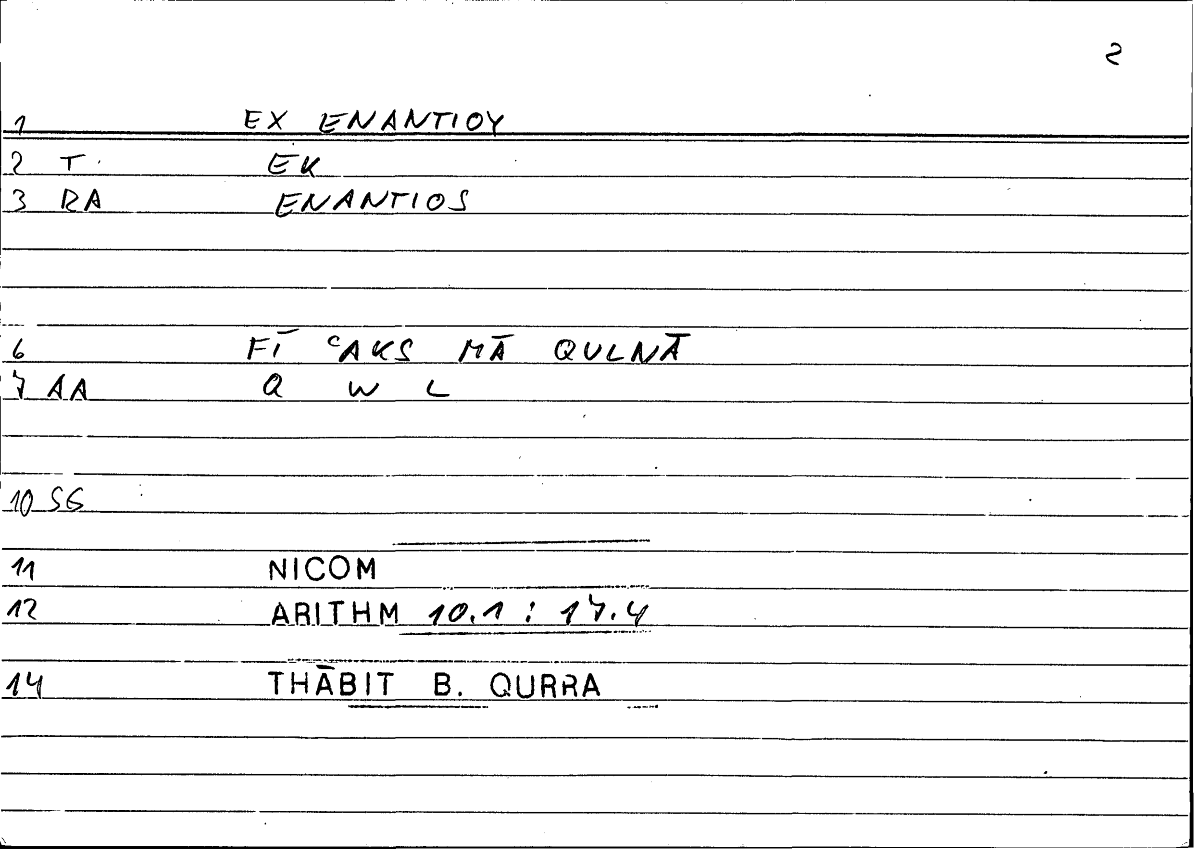 2
1 EX ENANTIOY
2 T. EK
3 RA ENANTIOS
6 FĪ ʿAKS MĀ QULNĀ
7 AA Q W L
10 SG
11 NICOM
12 ARITHM 10.1 : 17.4
14 THĀBIT B. QURRA